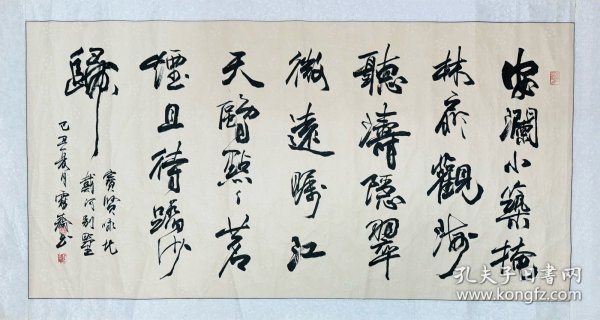 安瀾小築掩
林扉觀海
聽濤隱翠
微遠矚江
天鷖點點茗
煙且待踏沙
歸
賓賢詠北
戴河別墅
己丑 月 書
孔夫子旧书网
www.kongfz.com